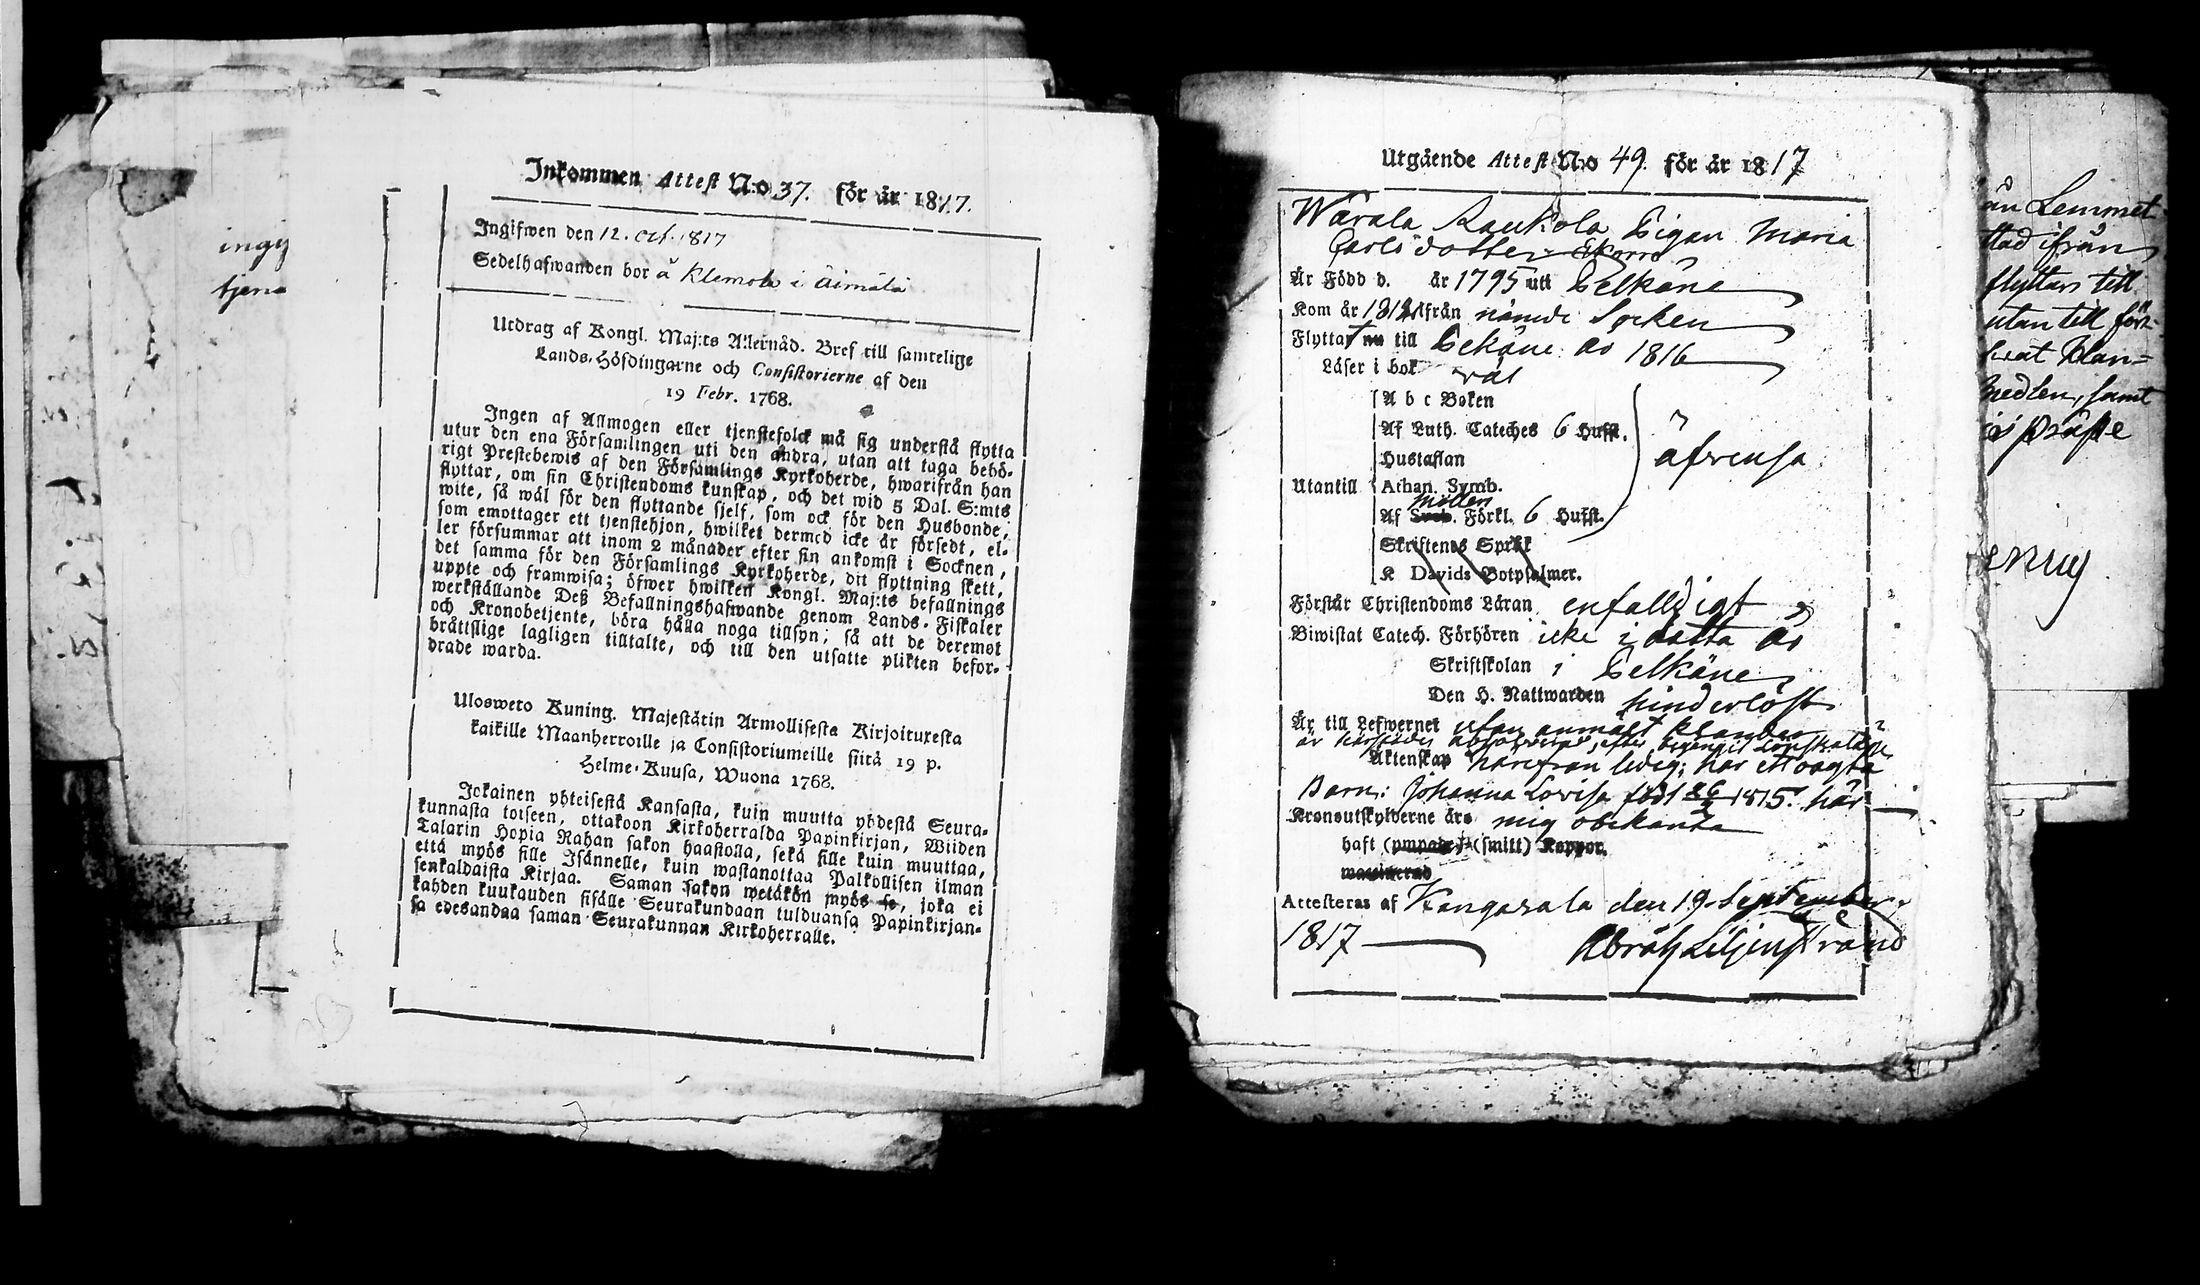 ingif
tjena
Inkommen Attest N:o 37. för år 1817.
Ingifwen den 12. Oct. 1817
Sedelhafwanden bor å Klemola i Äimälä
Utdrag af Kongl. Maj:ts Allernåd. Bref till samtelige
Lands-Höfdingarne och Consistorierne af den
19 Febr. 1768.
Ingen af Allmogen eller tjenstefolck må sig understå flytta
utur den ena Församlingen uti den andra, utan att taga behö-
rigt Prestebewis af den Församlings Kyrkoherde, hwarifrån han
flyttar, om sin Christendoms kunskap, och det wid 5 Dal. S:mts
wite, så wäl för den flyttande sjelf, som ock för den Husbonde,
som emottager ett tjenstehjon, hwilket dermed icke är försedt, el-
ler försummar att inom 2 månader efter sin ankomst i Socknen,
det samma för den Församlings Kyrkoherde, dit flyttning skett,
uppte och framwisa; öfwer hwilken Kongl. Maj:ts befallnings
werkställande Deß Befallningshafwande genom Lands-Fiskaler
och Kronobetjente, böra hålla noga tillsyn; så att de deremot
bråttslige lagligen tilltalte, och till den utsatte plikten befor-
drade warda.
Uloswето Kuning. Majestätin Armollisesta Kirjoituxesta
kaikille Maanherroille ja Consistoriumeille siitä 19 p.
Helme-Kuusa, Wuona 1768.
Jokainen yhteisestä Kansasta, kuin muutta yhdestä Seura-
kunnasta toiseen, ottakoon Kirkoherralda Papinkirjan, Wiiden
Talarin Hopia Rahan sakon haastolla, sekä sille kuin muuttaa,
että myös sille Isännelle, kuin wastanottaa Palkollisen ilman
senkaldaista Kirjaa. Saman sakon wetäkön myös se, joka ei
kahden kuukauden sisälle Seurakundaan tulduansa Papinkirjan-
sa edesandaa saman Seurakunnan Kirkoherralle.
Utgående Attest N:o 49. för år 1817
Wärala Raukola Pigan Maria
Carls dotter Ekorre
Är Född d. år 1795 uti Pelkäne
Kom år 1812 ifrån nämde Socken
Flyttat nu till Pelkäne år 1816
Läser i bok wäl
A b c Boken
Af Luth. Cateches 6 Hufst.
Hustaflan
Utantill Athan. Symb.
Möllers
Af Förkl. 6 Hufst.
äfwensa
Skriftenes Språk
K Davids Botpsalmer.
Förstår Christendoms Läran enfalldigt
Biwistat Catech. Förhören icke i detta år
Skriftskolan i Pelkäne
Den H. Nattwarden hinderlöst
Är till Lefwernet utan anmält klander
Äktenskap härifrån ledig; har ett oägta
Barn: Johanna Lovisa född 26 1815. här
Kronoutskylderne äro mig obekanta
haft (smitt) Koppor.
Attesteras af Kangasala den 19 September
1817 Abrah Liljenstrand
ån Lemmet-
ttad ifrån
flyttar till
utan till för-
medlen, samt